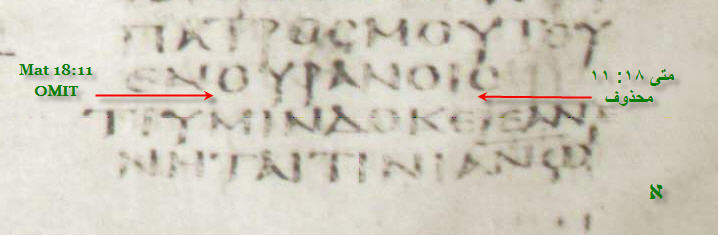 ΠΑΤΡΟϹΜΟΥΤΟΥ
Mat 18:11
OMIT
ΕΝΟΥΡΑΝΟΙϹ
متى ١٨: ١١
محذوف
ΤΙΥΜΙΝΔΟΚΕΙΕΑΝ
ΝΗΤΑΙΤΙΝΙΑΝΩ
א